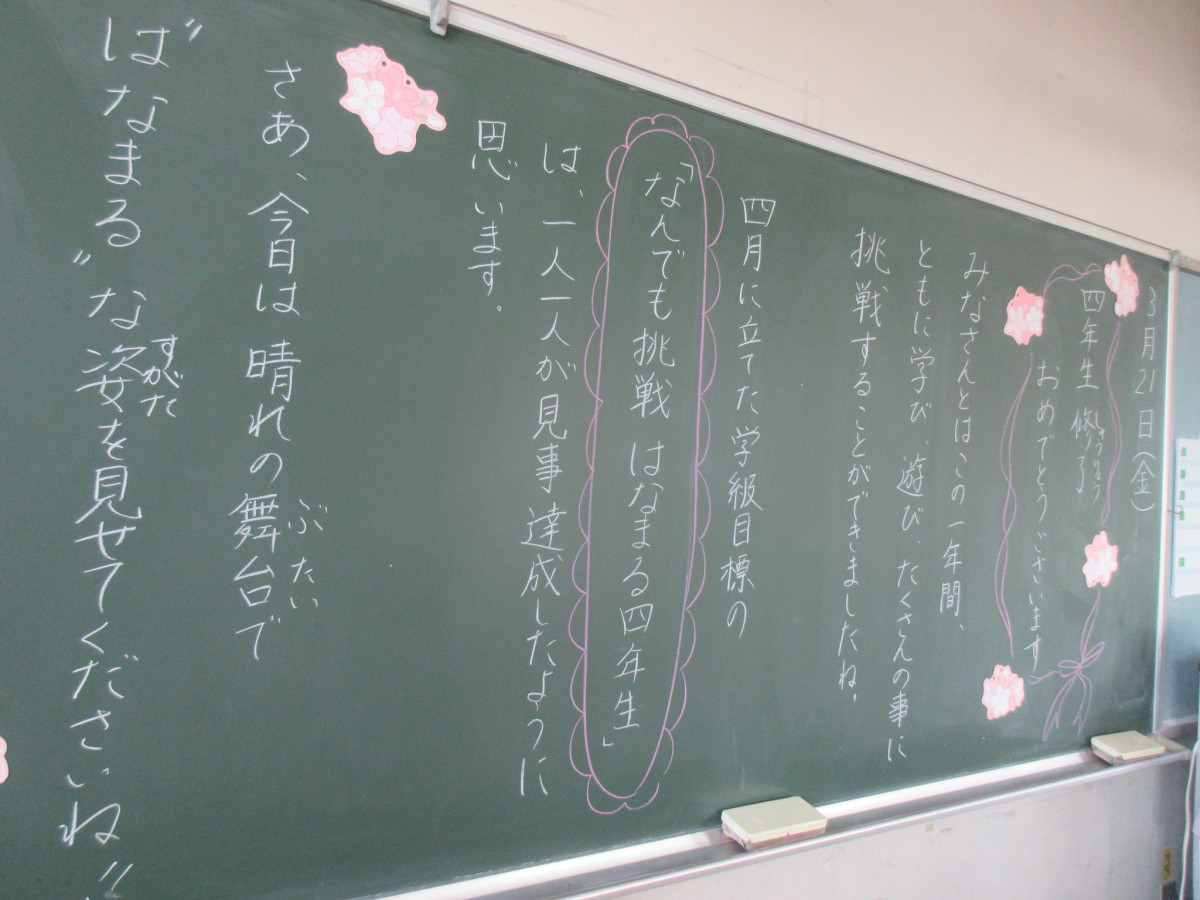 3月21日(金)
四年生 修了
しゅうりょう
おめでとうございます
みなさんとはこの一年間、
ともに学び、遊び、たくさんの事に
挑戦することができましたね。
四月に立てた学級目標の
「なんでも挑戦 はなまる四年生」
は、一人一人が見事達成したように
思います。
さあ、今日は晴れの舞台で
ぶたい
"はなまる"な姿を見せてくださいね!!
すがた